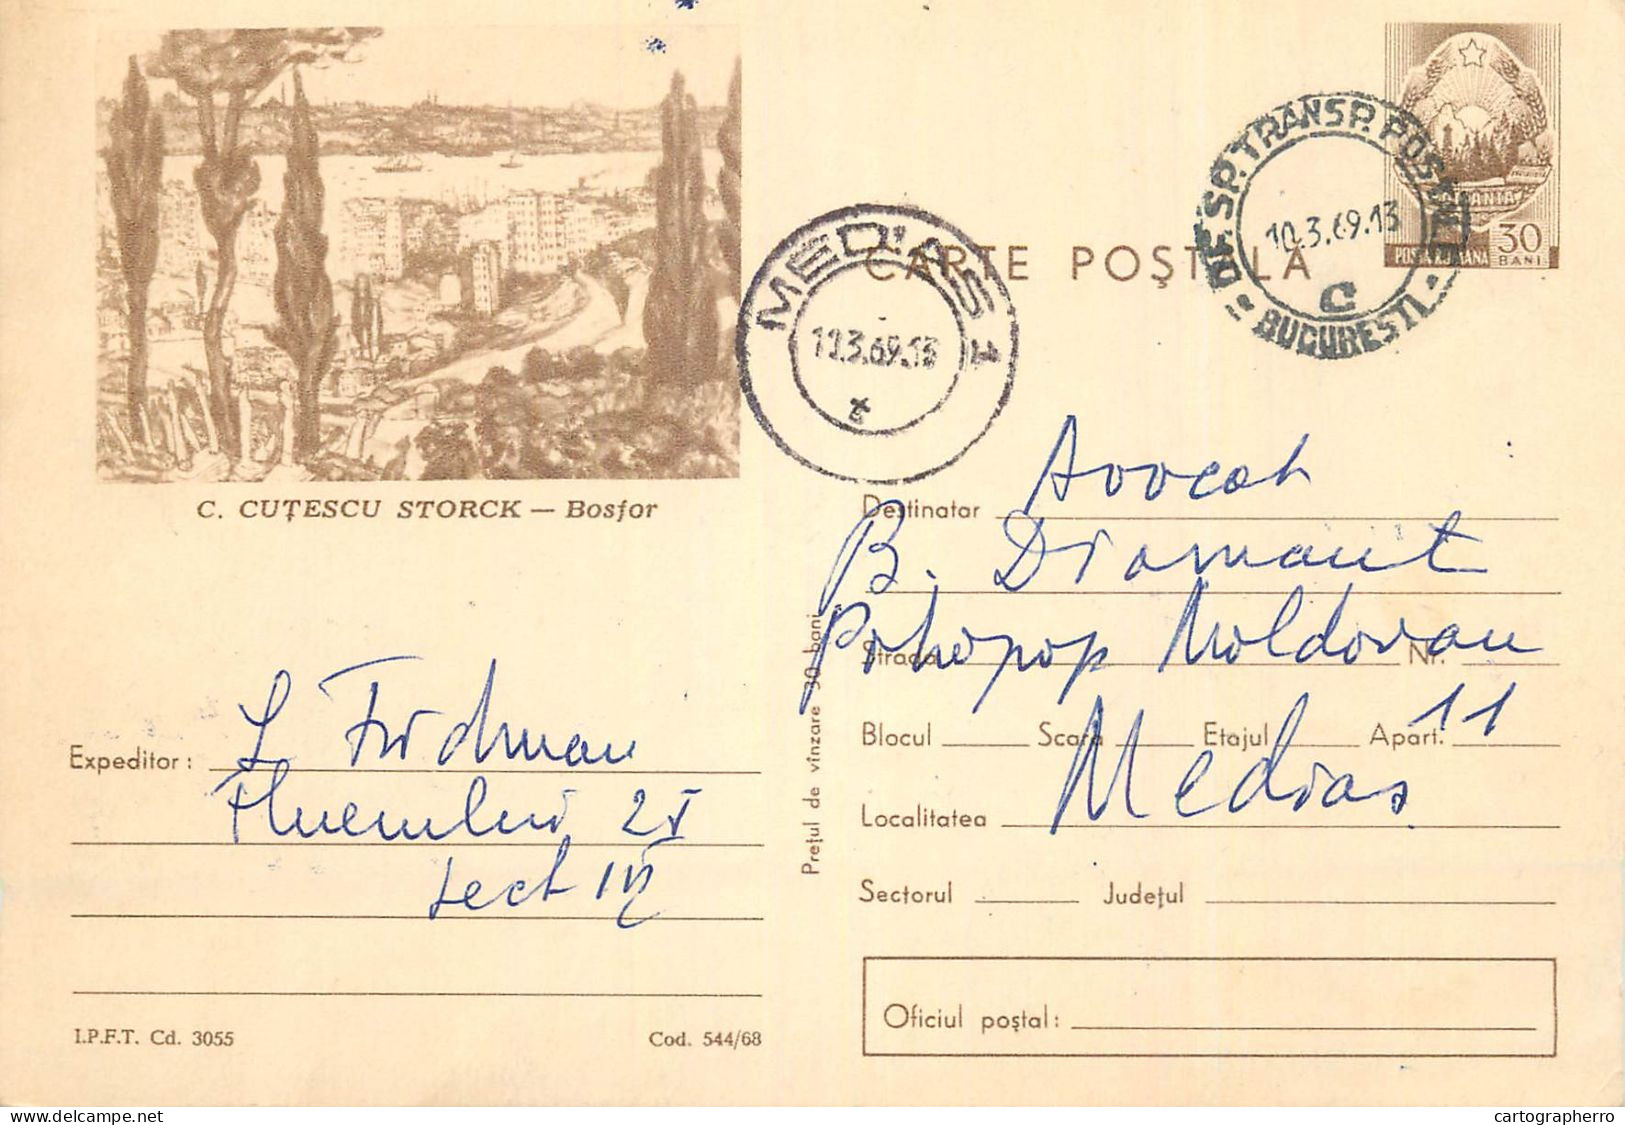 C. CUȚESCU STORCK — Bosfor
CARTE POȘTALA
MEDIAȘ 1
11.3.69.13
DE SP. TRANSP. POȘTAL
10.3.69.13
C
BUCUREȘTI
ROMANIA
POSTA ROMANA
30
BANI
Destinatar Avocat
B. Diamant
Strada Protopop Moldovan Nr.
11
Blocul Scara Etajul Apart.
Localitatea Medias
Sectorul Județul
Oficiul poștal:
Prețul de vînzare 30 bani
Expeditor: L Fridman
25
Sect IV
I.P.F.T. Cd. 3055
Cod. 544/68
cartographerro